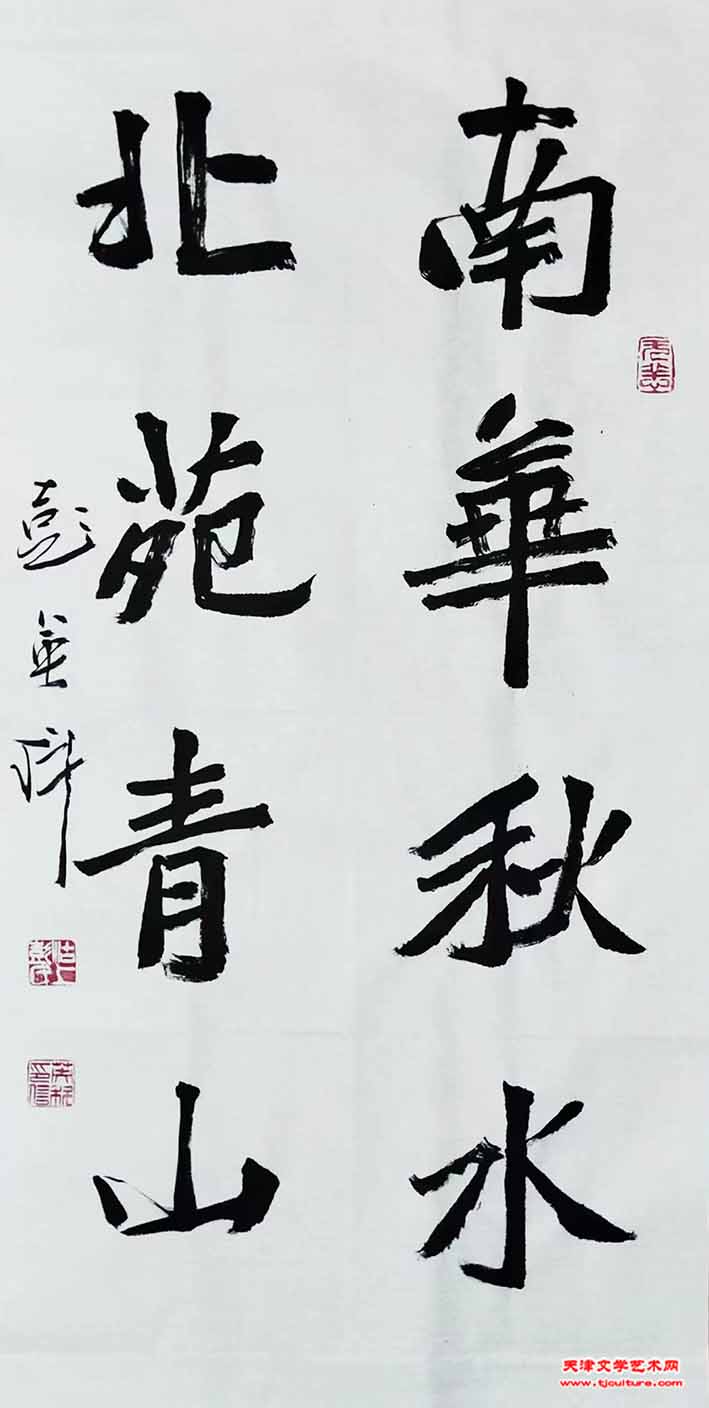 南華秋水
北苑青山
彭英科
天津文学艺术网
www.tjculture.com